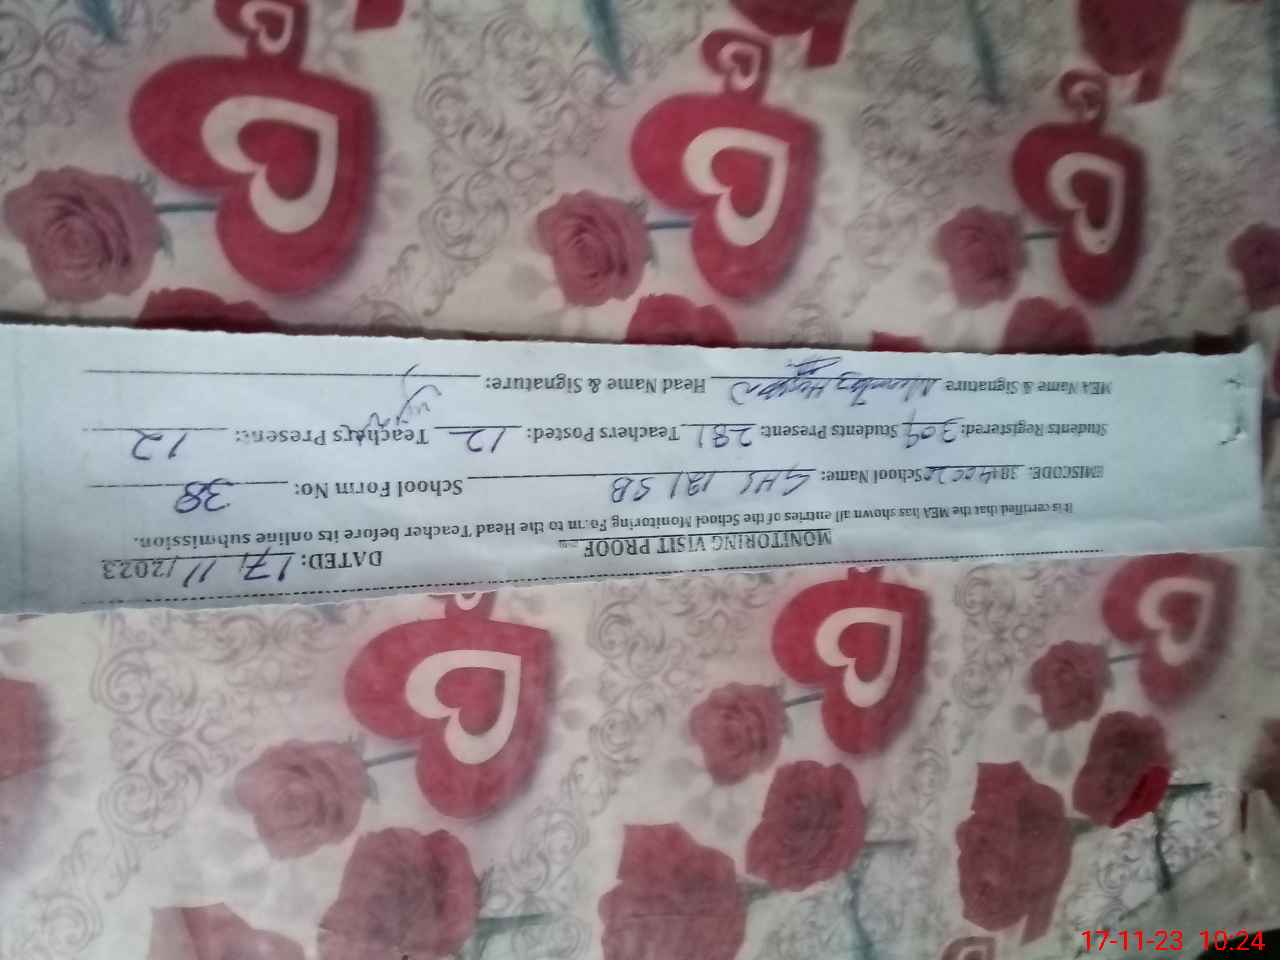 MONITORING VISIT PROOF DATED: 17/11/2023
It is certified that the MEA has shown all entries of the School Monitoring Form to the Head Teacher before its online submission.
EMISCODE. School Name: GHS 121 SB School Form No: 38
Students Registered: 309 Students Present: 281 Teachers Posted: 12 Teachers Present: 12
MEA Name & Signature Head Name & Signature:
17-11-23 10:24